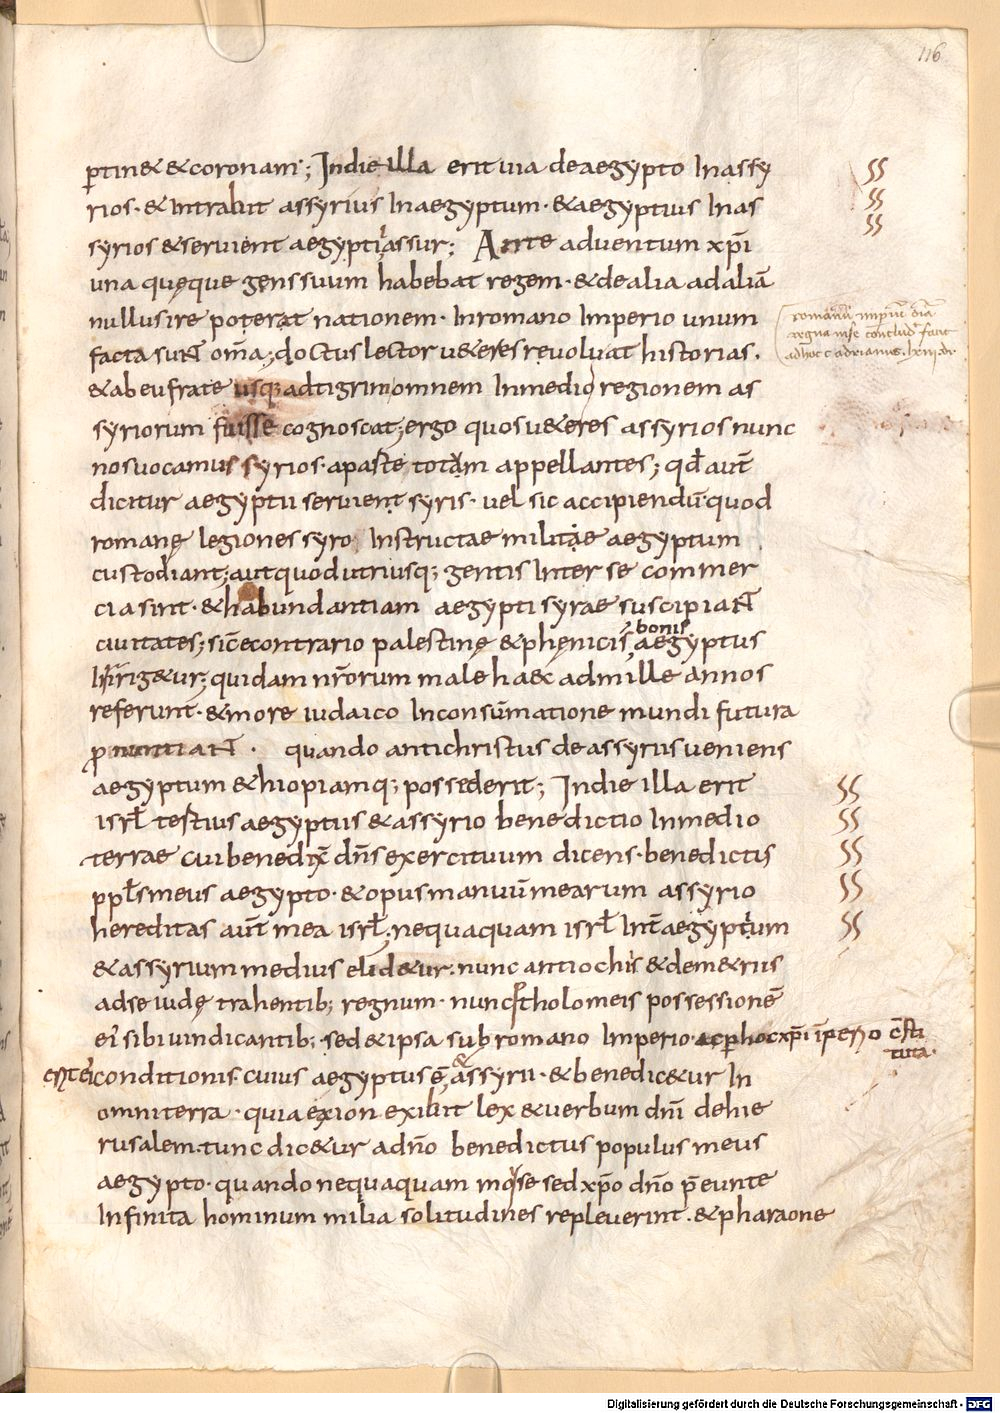 116
ptin& & coronam; In die illa erit via de aegypto In assy
rios. & Intrabit assyrius In aegyptum. & aegyptius In as
syrios & servient aegyptii assur; Ante adventum xp̄i
una quęque gens suum habebat regem. & de alia ad aliā
nullus ire poterat nationem. In romano Imperio unum
facta sunt om̄a; doctus lector v&eres revoluat historias.
& ab eufrate usq; ad tigrim omnem In medio regionem as
syriorum fuisse cognoscat; ergo quos u&eres assyrios nunc
nos vocamus syrios. a parte totam appellantes; qđ aut̄
dicitur aegyptii servient syris. vel sic accipiendū. quod
romanę legiones syro Instructae milite aegyptum
custodiant; aut quod utriusq; gentis Inter se commer
cia sint. & habundantiam aegypti syrae suscipiant
civitates; sic e contrario palestinę & phęnicis bonis aegyptus
Irrig&ur; quidam nr̄orum male haec ad mille annos
referunt. & more iudaico In consūmatione mundi futura
pronuntiant. quando antichristus de assyriis veniens
aegyptum &hiopiamq; possederit; In die illa erit
isrł tertius aegyptus & assyrio benedictio In medio
terrae cui benedix dn̄s exercituum dicens. benedictis
ppłs meus aegypto. & opus manuū mearum assyrio
hereditas aut̄ mea isrł; nequaquam isrł Int̄ aegyptum
& assyrium medius elid&ur. nunc antiochis & dem&riis
ad se iudę trahentib; regnum. nunc ptholomeis possessionē
ei sibi vindicantib; sed & ipsa sub romano Imperio ac p hoc xp̄i īperio c̄sti
tuta.
conditionis. cuius aegyptus ē, & assyrii. & benedic&ur In
omni terra. quia ex sion exibit lex & verbum dn̄i de hie
rusalem. tunc dic&ur a dn̄o benedictus populus meus
aegypto. quando nequaquam mose sed xp̄o dn̄o p̄eunte
Infinita hominum milia solitudines repleverint. & pharaone